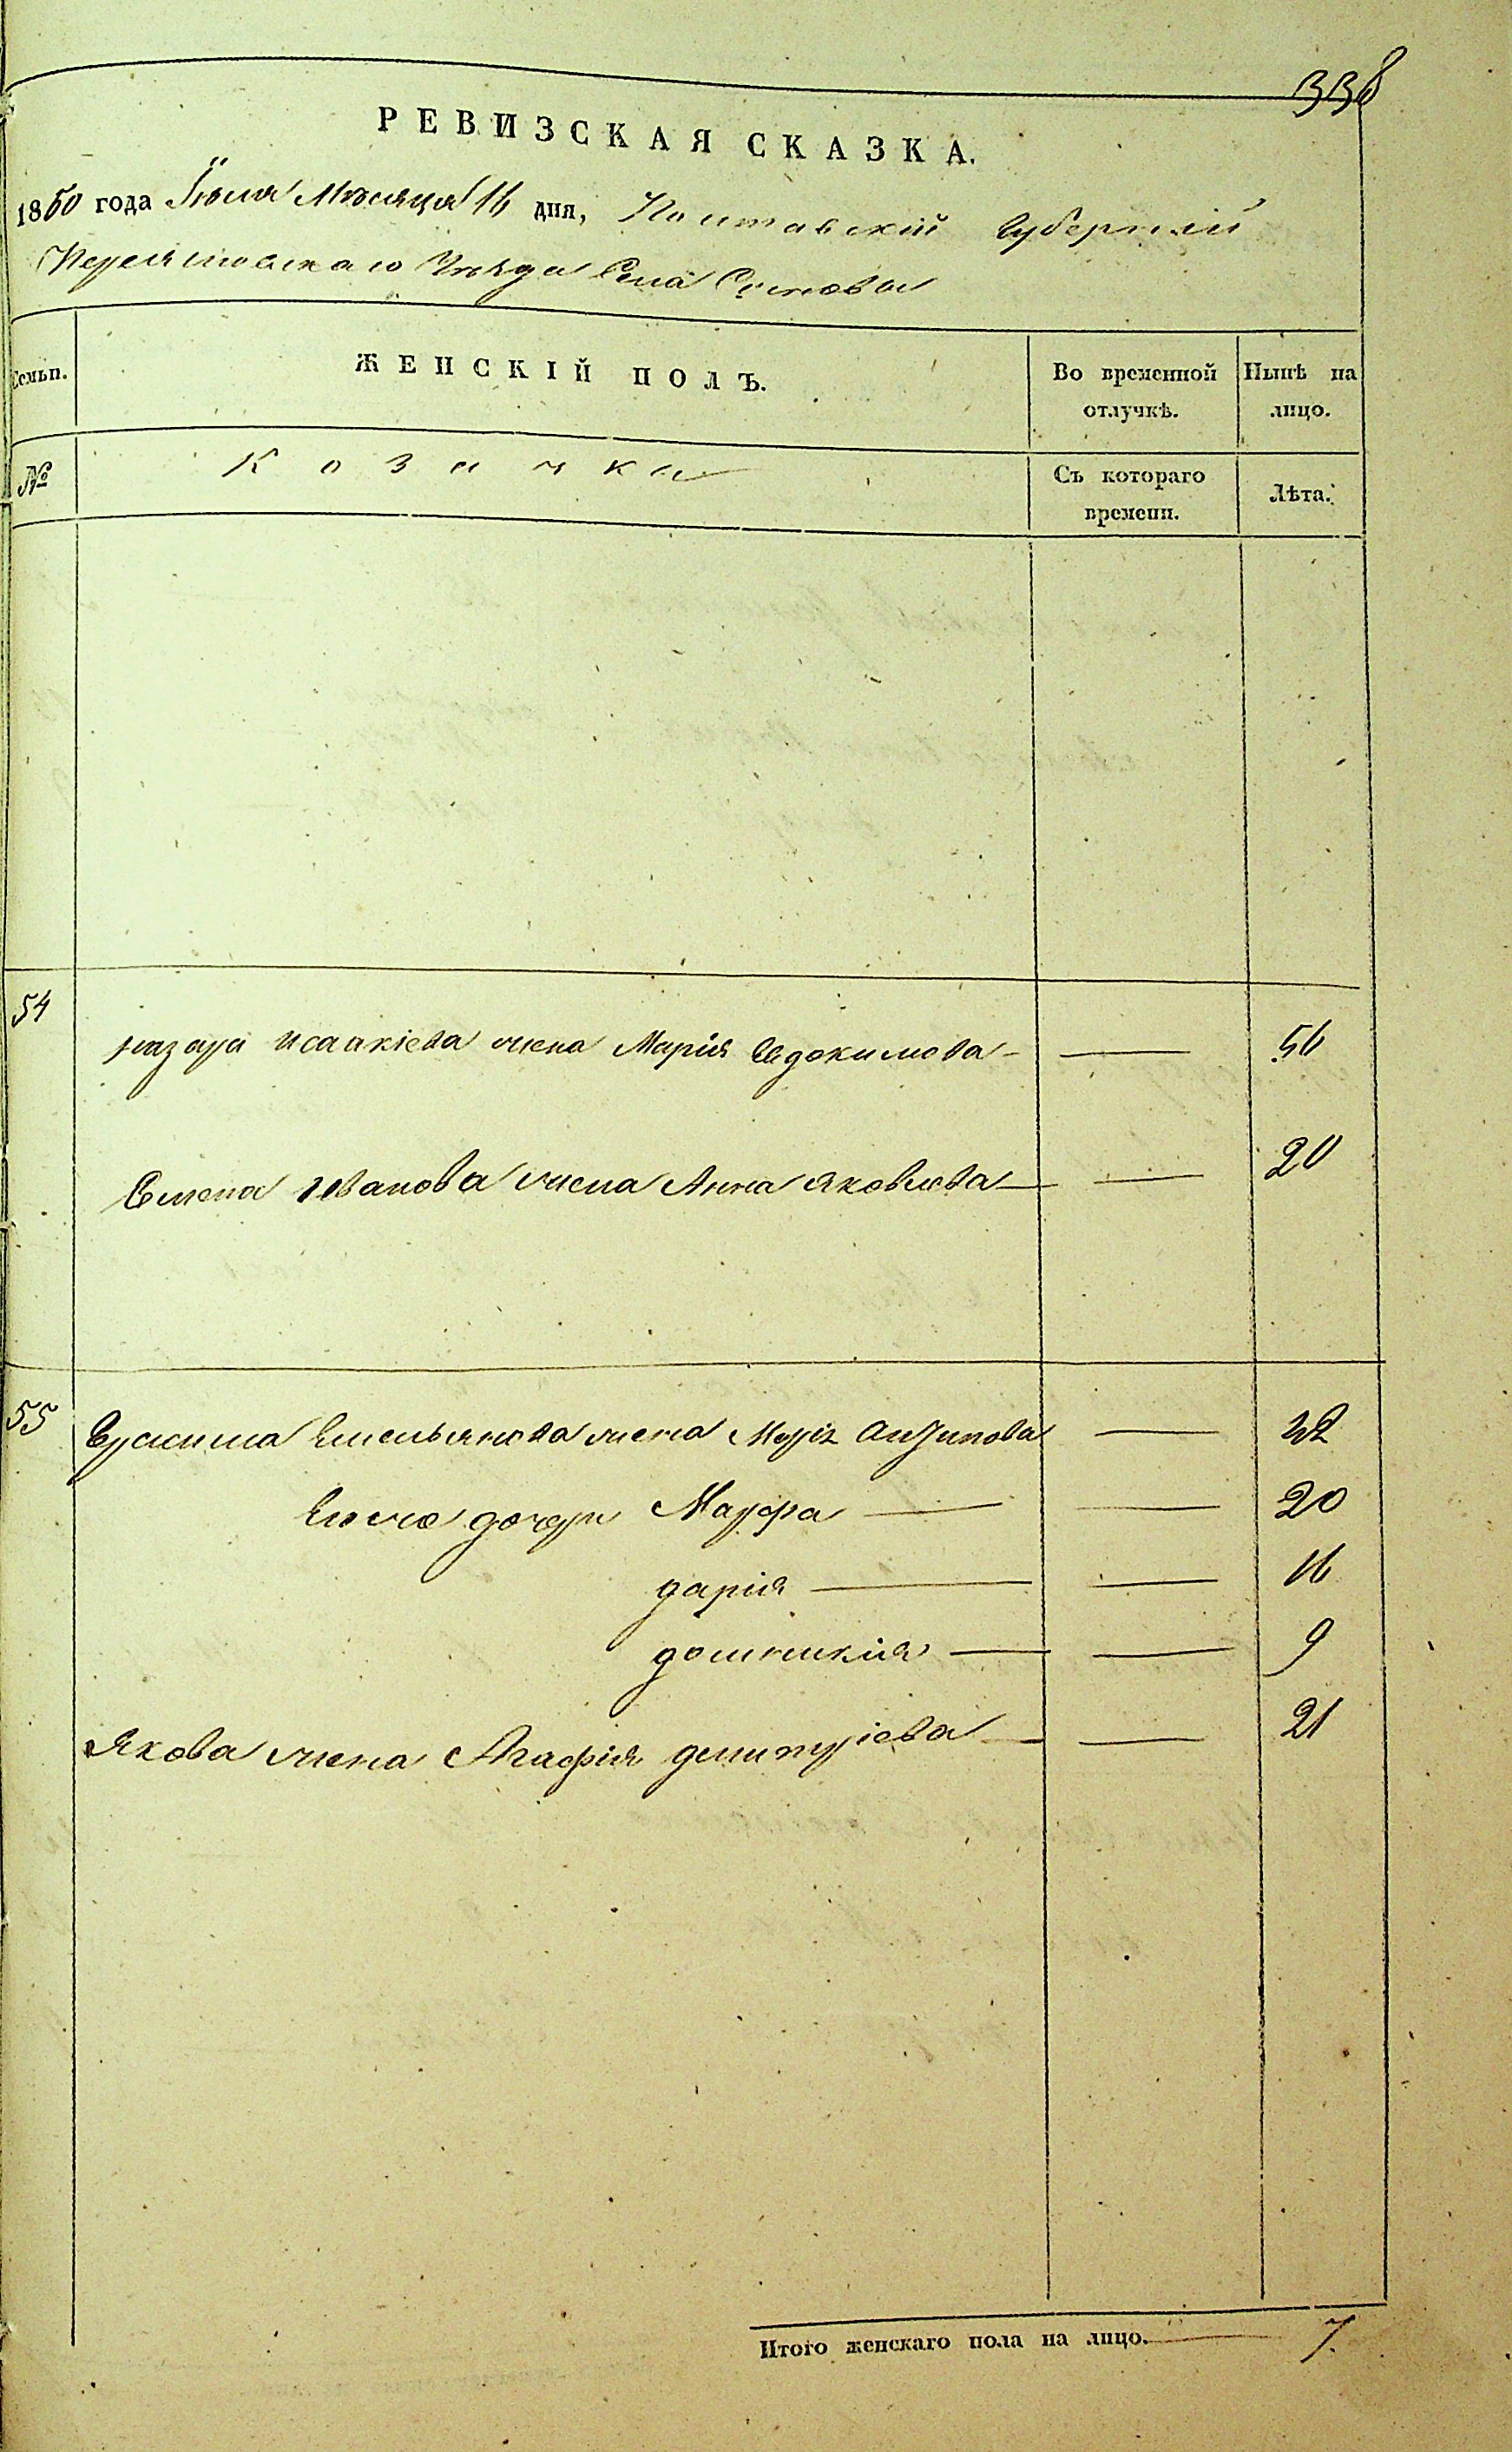 338
РЕВИЗСКАЯ СКАЗКА.
1850 года Іюля Мѣсяца 16 дня, Полтавской Губерніи
Переяславскаго Уѣзда Села
Семьи. ЖЕНСКІЙ ПОЛЪ. Во временной отлучкѣ. Нынѣ на лицо.
№ Козачки Съ котораго времени. Лѣта.
54
назара исаакіева жена Марія Евдокимова — — 56
Семена Иванова жена Анна Яковлева — — 20
55
Емельянова жена Марія Антипова —
дочери Марфа — — 20
дарія — — 16
домникія — — 9
Якова жена Агафія димитріева — — 21
Итого женскаго пола на лицо. — 7.